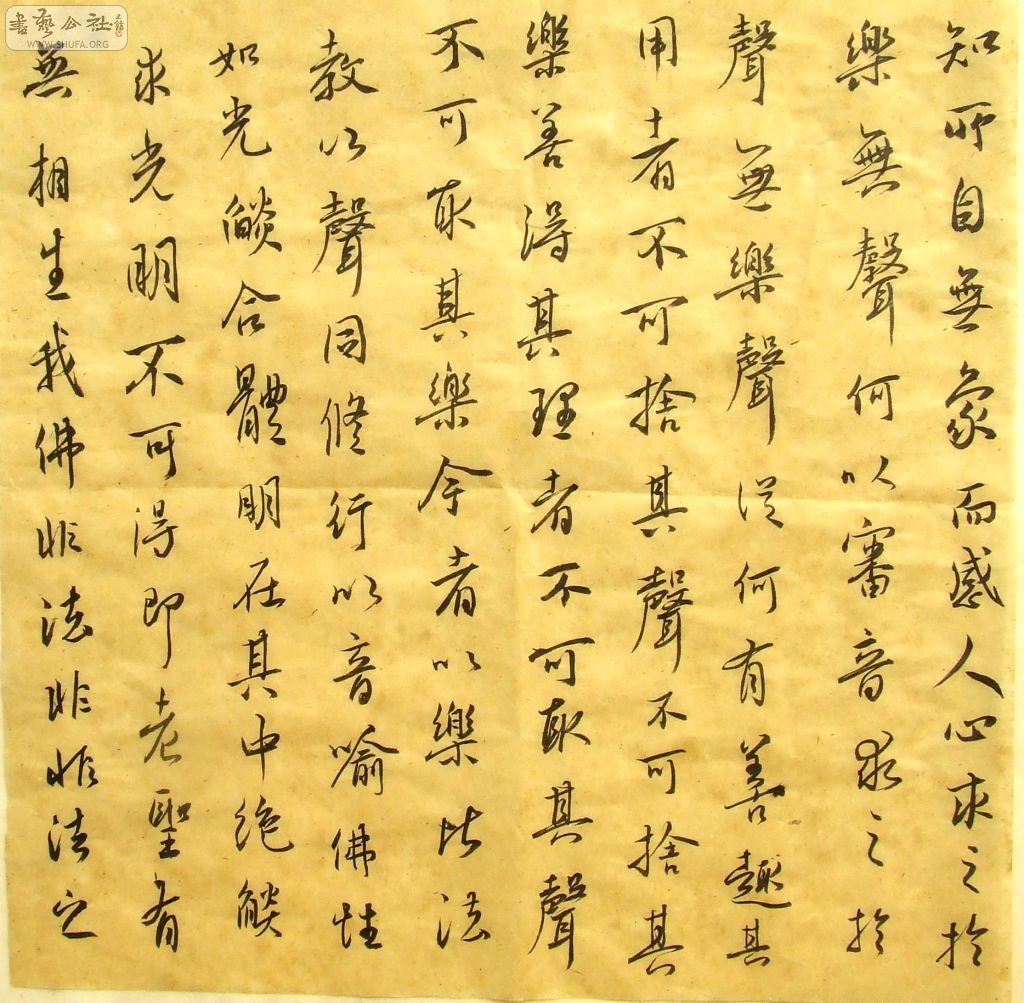 書藝公社
WWW.SHUFA.ORG
知所自無象而感人心求之於
樂無聲何以審音求之於
聲無樂聲從何有善趣其
用者不可捨其聲不可捨其
樂善得其理者不可取其聲
不可取其樂今者以樂此法
教以聲同修行以音喻佛性
如光燄合體明在其中絶燄
求光明不可得即老聖有
無相生我佛非法非非法之